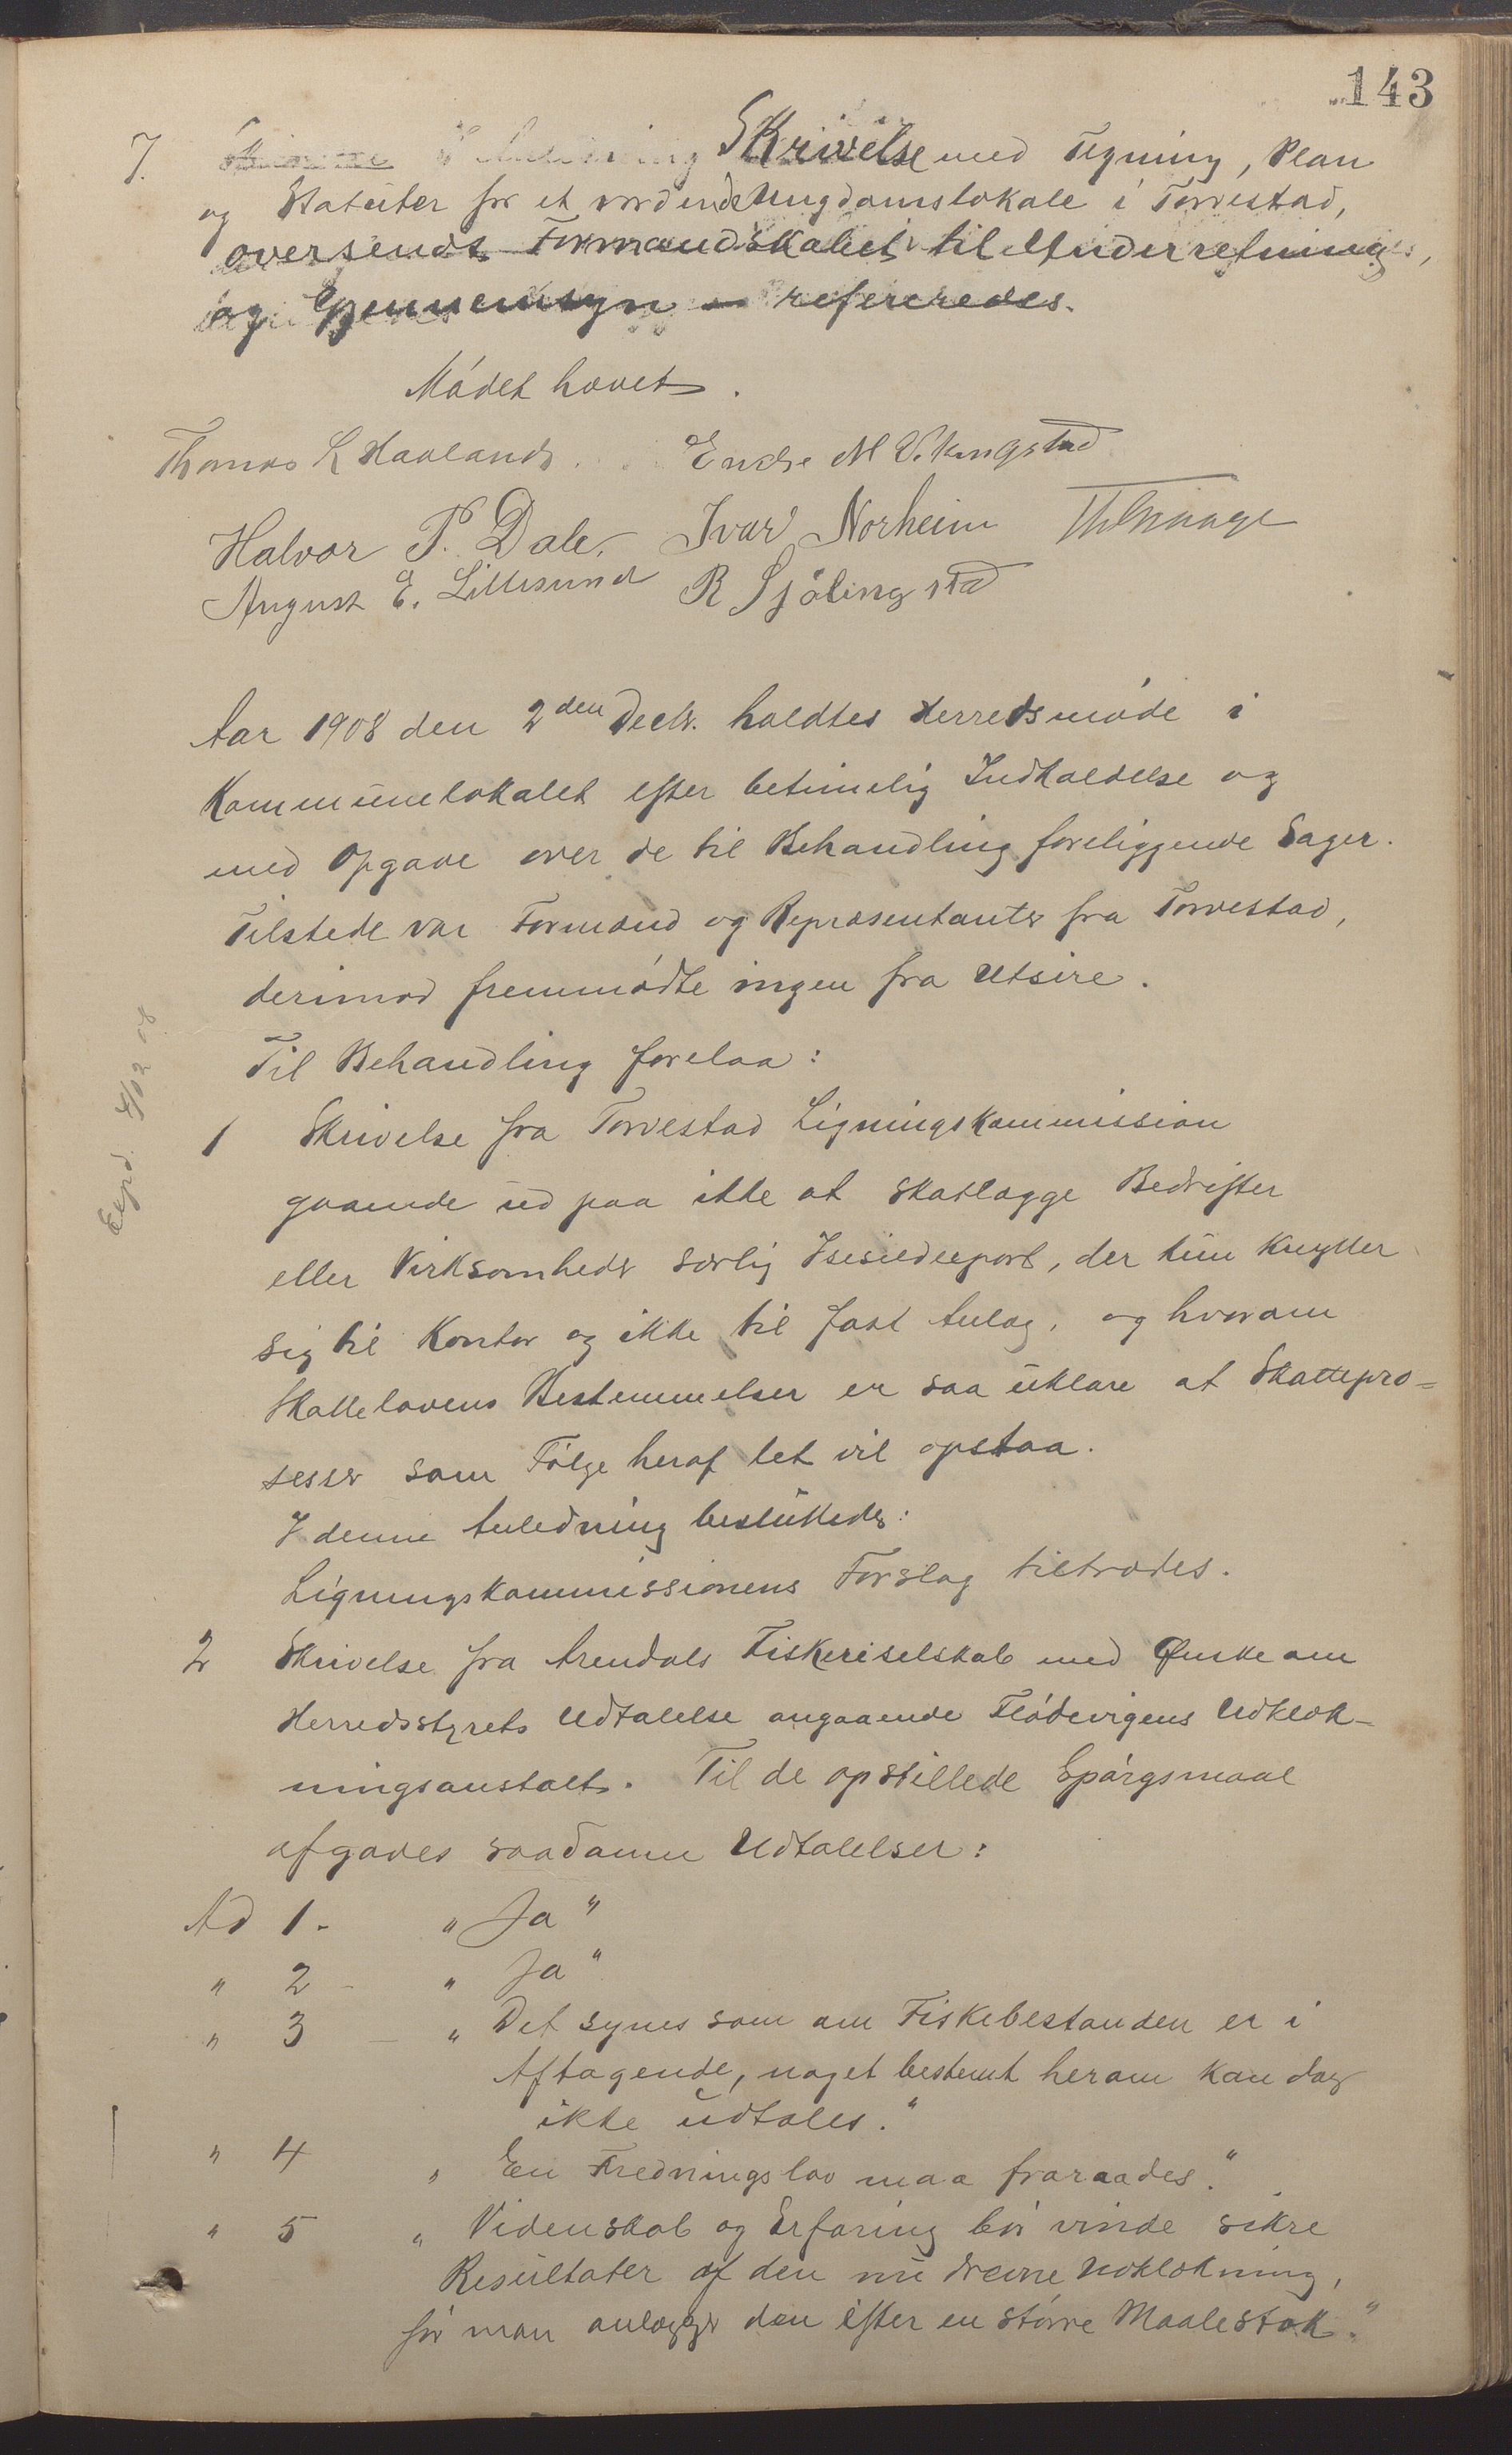 143
7. Skrivelse med Tegning, Plan
og Statuter for et vordende Ungdomslokale i Torvestad,
oversendt Formandskabet til Underretning
og Gjennemsyn — refereredes.
Mødet hævet.
Thomas L Havland. Endre M Vikingstad
Halvor P. Dale, Ivar Norheim
August E. Lillesund R Sjølingstad
Aar 1908 den 2den Decbr. holdtes Herredsmøde i
Kommunelokalet efter betimelig Indkaldelse og
med Opgave over de til Behandling foreliggende Sager.
Tilstede var Formænd og Repræsentanter fra Torvestad,
derimod fremmødte ingen fra Utsire.
Til Behandling forelaa:
Expd. 4/12 08
1 Skrivelse fra Torvestad Ligningskommission
gaaende ud paa ikke at skatlægge Bedrifter
eller Virksomheder særlig Isesildexport, der kun knytter
sig til Kontor og ikke til fast Anlæg, og hvorom
Skattelovens Bestemmelser er saa uklare at Skattepro-
sesser som Følge heraf let vil opstaa.
I denne Anledning besluttedes:
Ligningskommissionens Forslag tiltrædes.
2 Skrivelse fra Arendals Fiskeriselskab med Ønske om
Herredsstyrets Udtalelse angaaende Flødevigens Udklæk-
ningsanstalt. Til de opstillede Spørgsmaal
afgaves saadanne Udtalelser:
Ad 1. - „Ja"
„ 2 - „Ja"
„ 3 - „Det synes som om Fiskebestanden er i
Aftagende, noget bestemt herom kan dog
ikke udtales."
„ 4 „En Fredningslov maa fraraades."
„ 5 „Videnskab og Erfaring bør vinde sikre
Resultater af den nu drevne Udklækning,
før man anlægger den efter en større Maalestok."